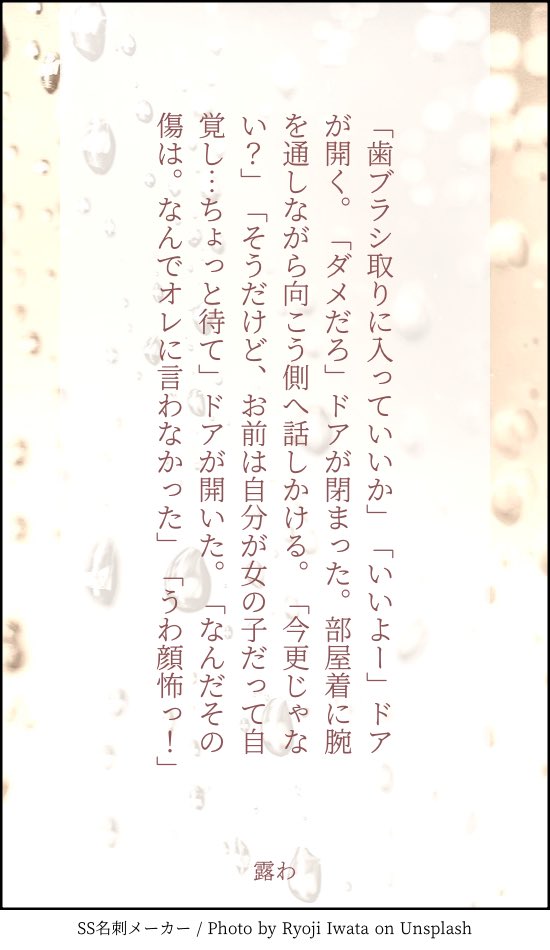 「歯ブラシ取りに入っていいか」「いいよー」ドア
が開く。「ダメだろ」ドアが閉まった。部屋着に腕
を通しながら向こう側へ話しかける。「今更じゃな
い？」「そうだけど、お前は自分が女の子だって自
覚し…ちょっと待て」ドアが開いた。「なんだその
傷は。なんでオレに言わなかった」「うわ顔怖っ！」
露わ
SS名刺メーカー / Photo by Ryoji Iwata on Unsplash